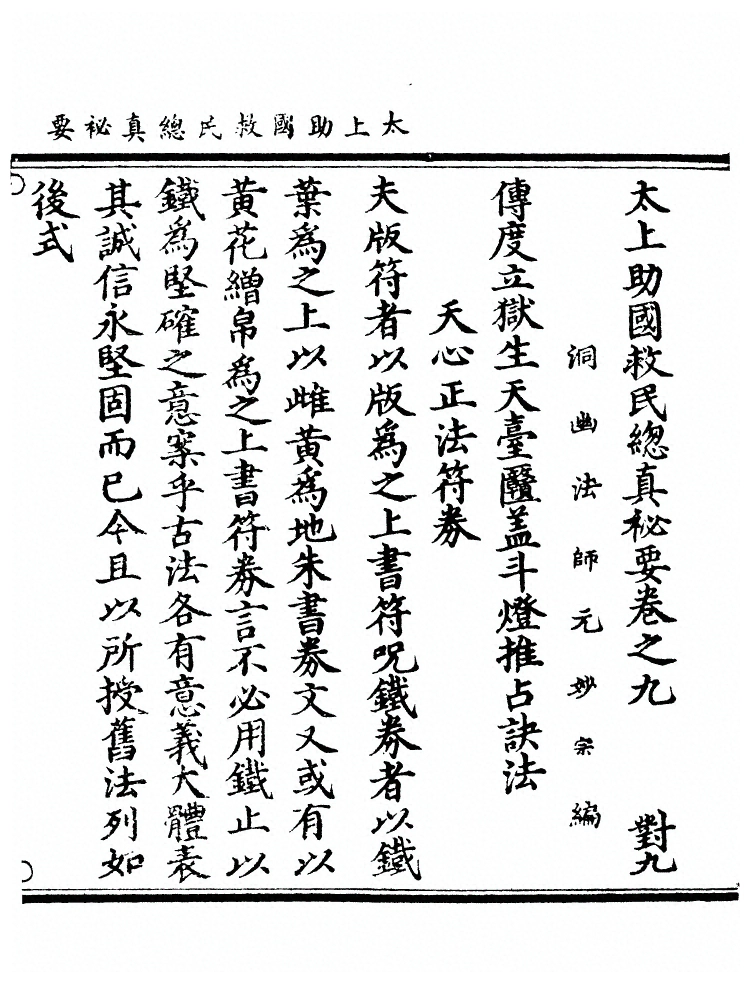 太上助國救民總真祕要
太上助國救民總真祕要卷之九 對九
洞幽法師元妙宗編
傳度立獄生天臺驪蓋斗燈推占訣法
天心正法符券
夫版符者以版爲之上書符呪鐵券者以鐵
葉爲之上以雌黃爲地朱書券文又或有以
黃花繒帛爲之上書符券言不必用鐵止以
鐵爲堅確之意案乎古法各有意義大體表
其誠信永堅固而已今且以所授舊法列如
後式